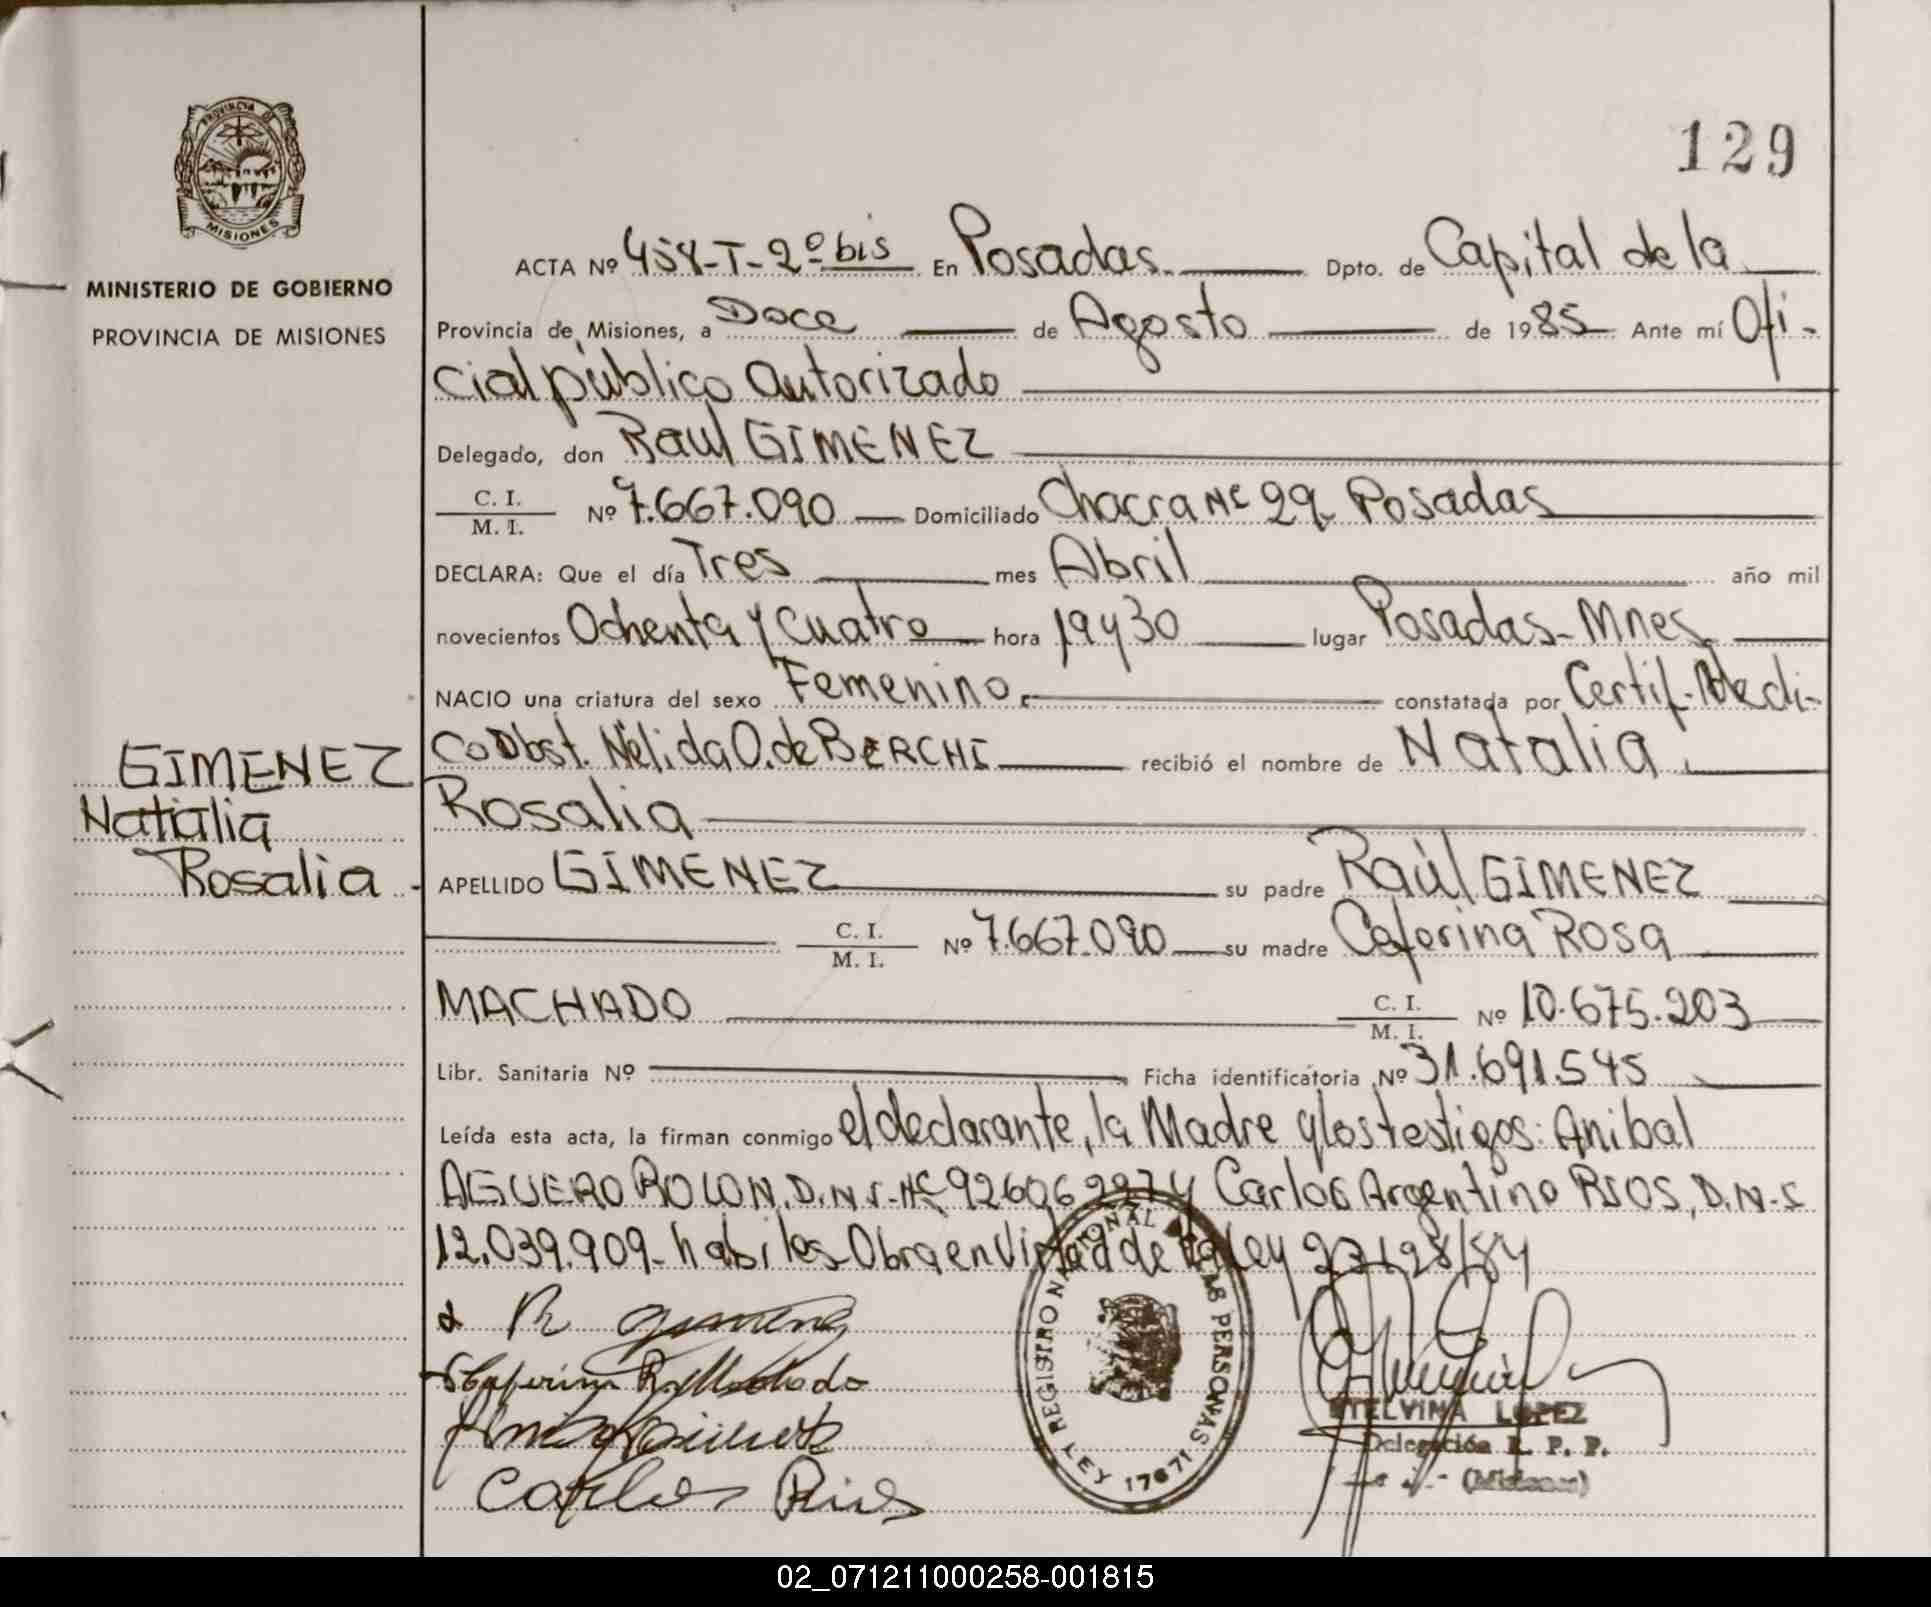 129
PROVINCIA DE
MISIONES
MINISTERIO DE GOBIERNO
PROVINCIA DE MISIONES
ACTA Nº 458-T-2º bis En Posadas Dpto. de Capital de la
Provincia de Misiones, a Doce de Agosto de 1985 Ante mí Ofi-
cial público autorizado
Delegado, don Raul GIMENEZ
C. I.
M. I.
Nº 7.667.090 Domiciliado Chacra Nº 29 Posadas
DECLARA: Que el día Tres mes Abril año mil
novecientos Ochenta y Cuatro hora 19 y 30 lugar Posadas-Mnes
NACIO una criatura del sexo Femenino constatada por Certif. Medi-
co Obst. Nélida O. de BERCHI recibió el nombre de Natalia
Rosalia
GIMENEZ
Natalia
Rosalia
APELLIDO GIMENEZ su padre Raúl GIMENEZ
C. I.
M. I.
Nº 7.667.090 su madre Ceferina Rosa
MACHADO
C. I.
M. I.
Nº 10.675.203
Libr. Sanitaria Nº Ficha identificatoria Nº 31.691.545
Leída esta acta, la firman conmigo el declarante, la Madre y los testigos: Anibal
AGUERO ROLON, D.N.I.-Nº y Carlos Argentino RIOS, D.N.I
12.039.909- habiles Obra en Virtud de la Ley
R. Gimenez
Ceferina R. Machado
Carlos Rios
REGISTRO NACIONAL DE LAS PERSONAS
LEY 17671
ETELVINA LOPEZ
Delegación R. P. P.
(Misiones)
02_071211000258-001815